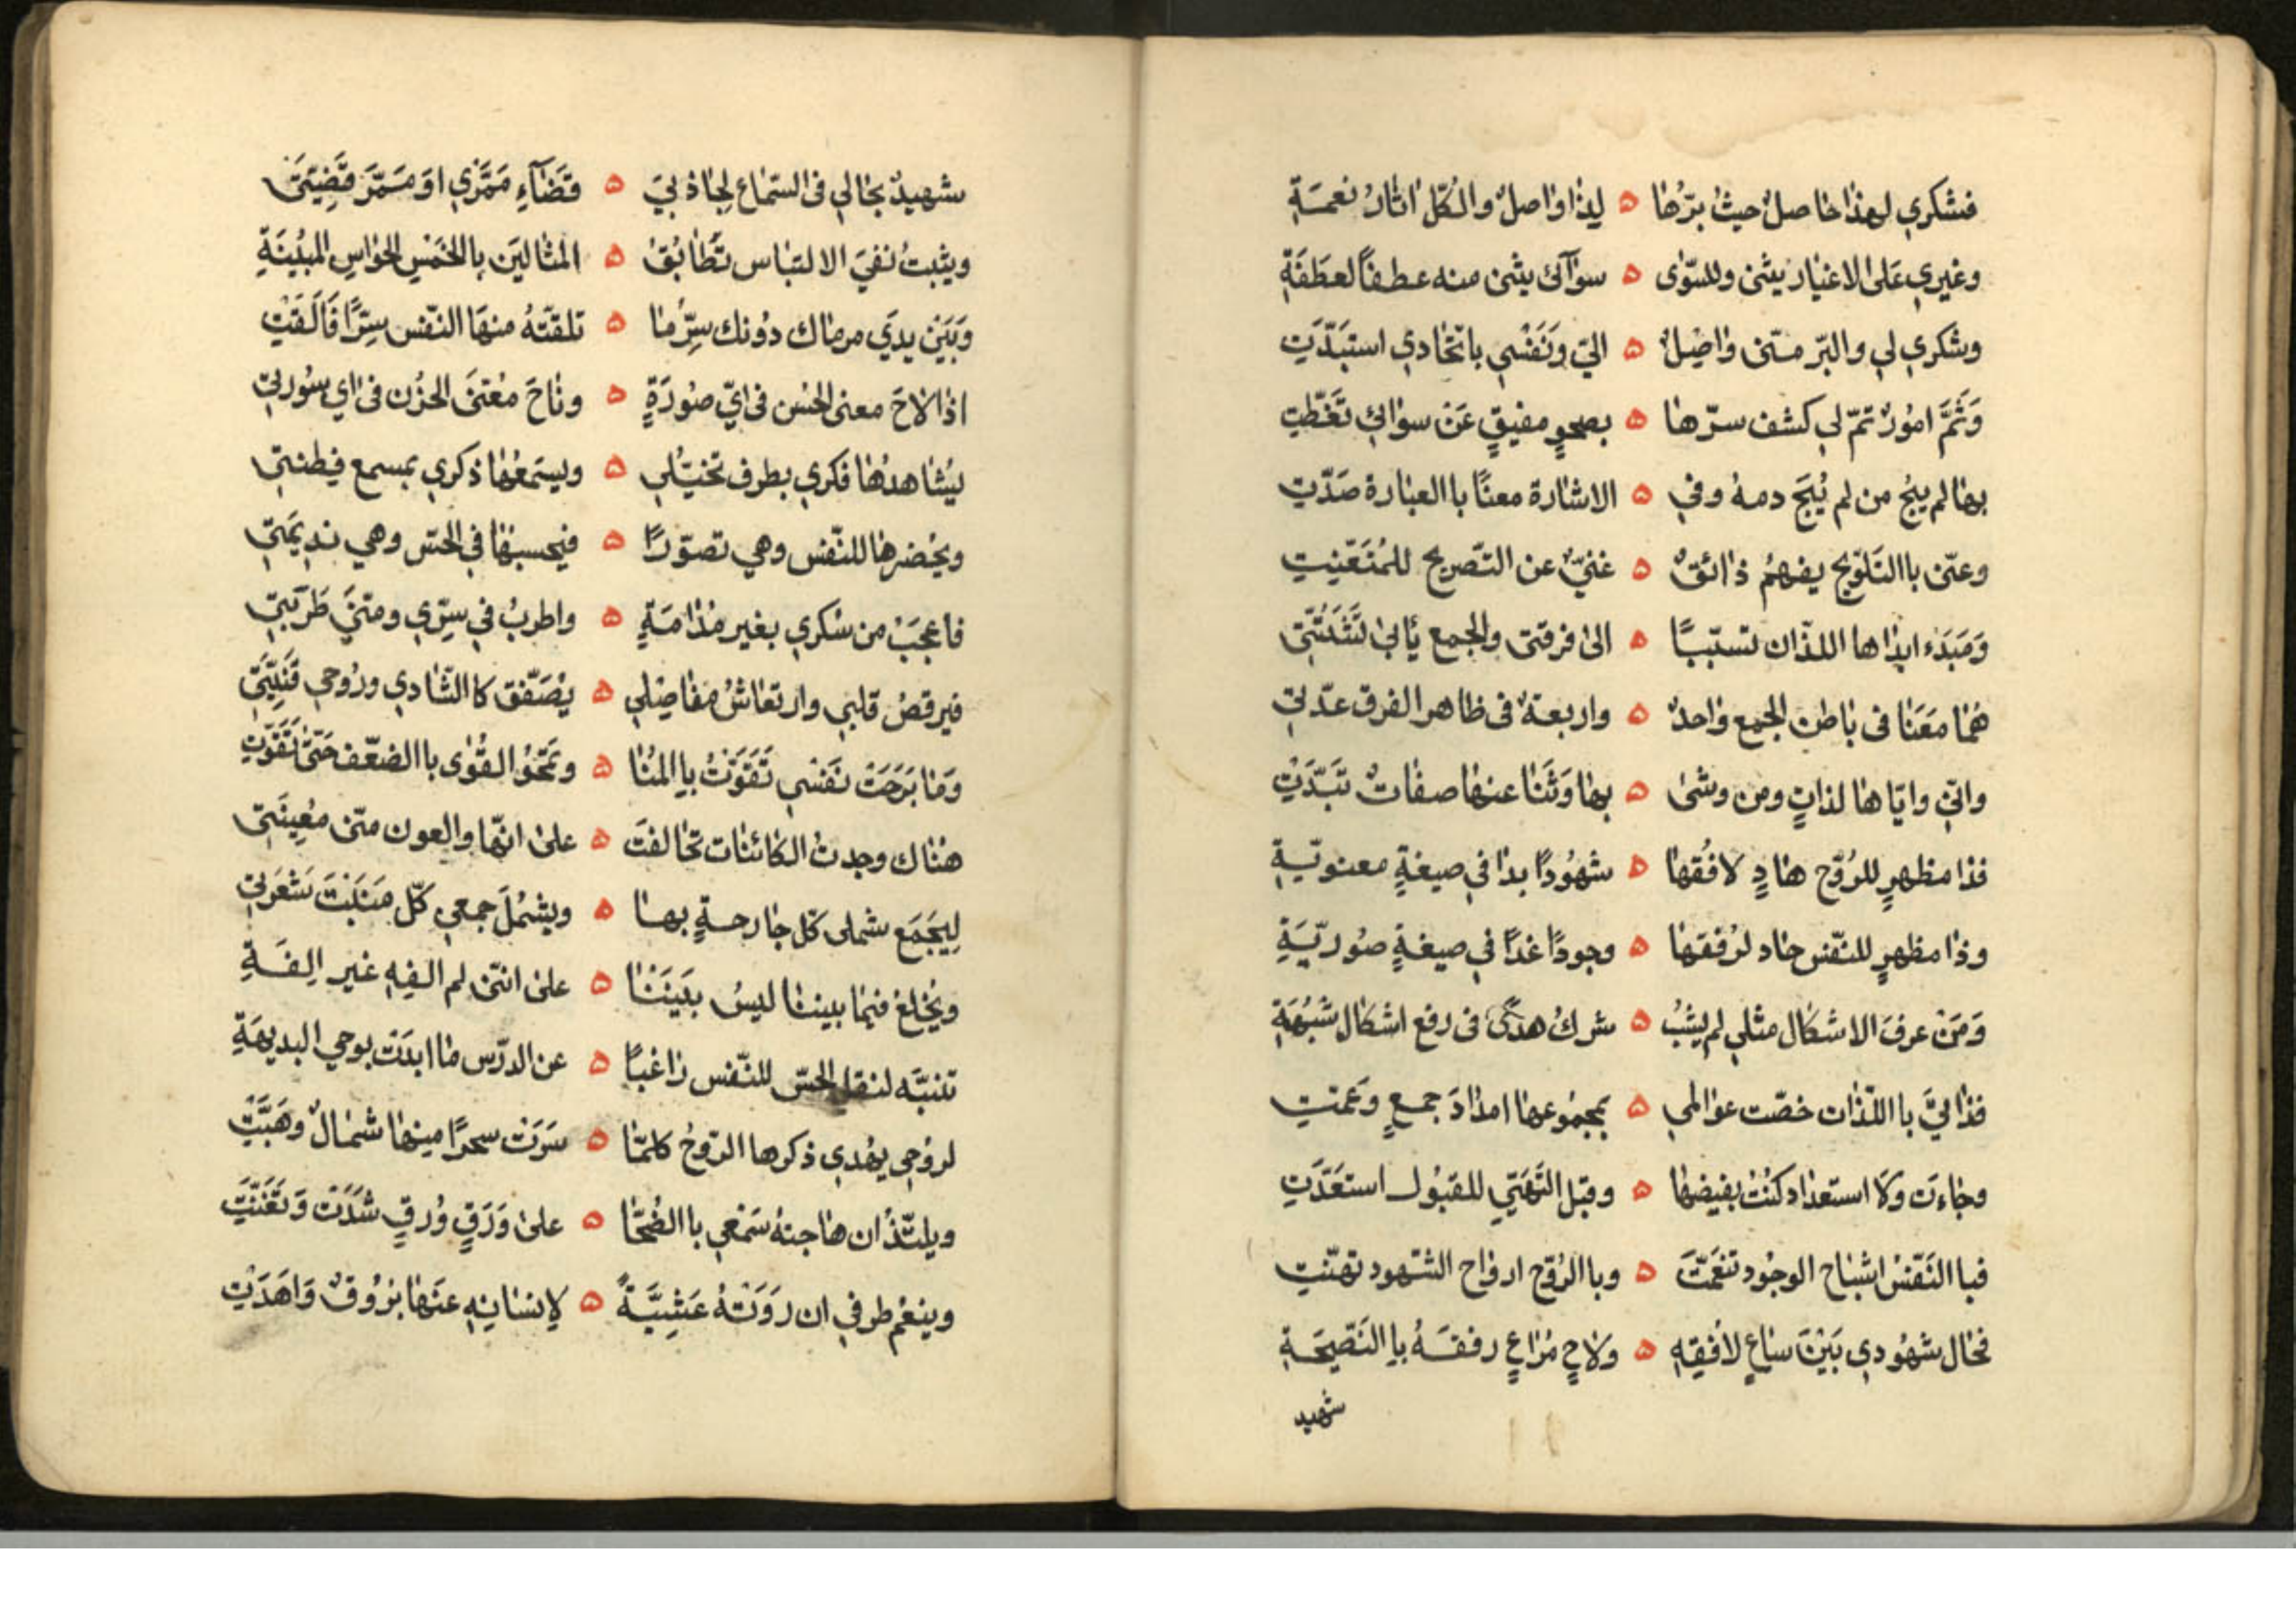 فشكري لهذا حاصل حيث برّها ۵ لذا واصل والكلّ اثار نعمة
وغيري على الاغيار يثنى وللسّوى ۵ سوآئى يثنى منه عطفاً لعطفة
وشكري لي والبرّ منّى واصل ۵ اليّ ونفسي باتّحادي استبدّت
وثمّ امور تمّ لي كشف سرّها ۵ بصحو مفيق عن سواي تغطّت
بها لم يبح من لم يُبح دمه وفي ۵ الاشارة معنًا باالعبارة صدّت
وعنّى باالتلويح يفهم ذائق ۵ غنيّ عن التّصريح للمتعنّت
ومبدء ابداها اللذان تسبّبا ۵ الى فرقتى والجمع يأبى تشتّتي
هما معنا فى باطن الجمع واحد ۵ واربعة فى ظاهر الفرق عدّت
وانّي وايّاها لذات ومن وشى ۵ بها وثنا عنها صفات تبدّت
فذا مظهر للرّوح هاد لافقها ۵ شهودًا بدا في صيغة معنويّة
وذا مظهر للنّفس حاد لرفقها ۵ وجودًا غدًا في صيغة صوريّة
ومن عرف الاشكال مثلي لم يشبه ۵ شرك هدى فى رفع اشكال شبهة
فذاتيّ باالّلذات خصّت عوالمي ۵ بمجموعها امداد جمع وعمّت
وجاءت ولا استعداد كنت بفيضها ۵ وقبل التّهيّي للقبول استعدّت
فباالنّفس اشباح الوجود تنعّمت ۵ وباالرّوح ارواح الشهود تهنّت
فحال شهودي بين ساع لافقه ۵ ولاح مراع رفقه باالنّصيحة
شهيد
شهيد بحالي فى السّماع لجاذبي ۵ قضآء مقرّي او ممرّ قضيّتي
ويثبت نفي الالتباس تطابق ۵ المثالين باالخمس الحواس المبينة
وبين يدي مرماك دونك سرّ ما ۵ تلقّته منها النّفس سرًّا فألقت
اذا لاح معنى الحسن فى ايّ صورة ۵ وناح معنّى الحزن فى اي سورة
يشاهدها فكري بطرف تخيّلي ۵ ويسمعها ذكري بمسمع فطنتي
ويحضرها للنّفس وهي تصوّرًا ۵ فيحسبها في الحسّ وهي نديمتي
فاعجب من سكري بغير مدامة ۵ واطرب في سرّي ومنّي طربتي
فيرقص قلبي وارتعاش مفاصلي ۵ يصفّق كاالشّادي وروحي قنيتي
وما برحت نفسي تقوّت باالمنا ۵ وتمحو القوى باالضعف حتّى تقوّت
هناك وجدت الكائنات تحالفت ۵ على انّها والعون منّى معينتى
ليجمع شملى كل جارحة بها ۵ ويشمل جمعي كلّ منبت شعرتي
ويخلع فيما بيننا لبس بيننا ۵ على انّنى لم الفه غير الفة
تنبّه لنقل الحسّ للنّفس راغبًا ۵ عن الدّرس ما ابدت بوحي البديهة
لروحي يهدي ذكرها الرّوح كلّما ۵ سرت سحرًا منها شمال وهبّت
ويلتذّ ان هاجته سمعي باالضّحا ۵ على ورق ورق شدت وتغنّت
وينعم طرفي ان روته عشيّة ۵ لإنسانه عنها بروق واهدت